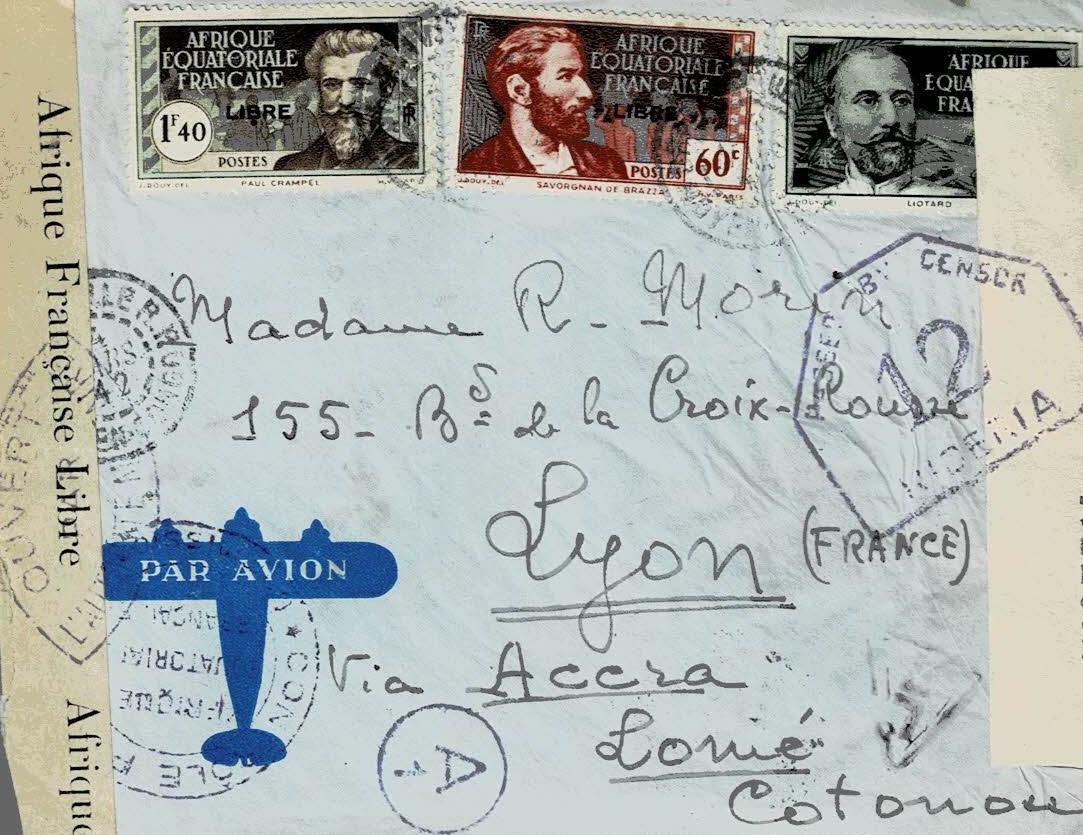 AFRIQUE
ÉQUATORIALE
FRANÇAISE
LIBRE
RF
1F40
POSTES
J.DOUY.DEL
PAUL CRAMPEL
RF
AFRIQUE
ÉQUATORIALE
FRANÇAISE
LIBRE
POSTES 60c
J.DOUY.DEL
SAVORGNAN DE BRAZZA
AFRIQUE
ÉQUA
FRA
J.DOUY.DEL
LIOTARD
Afrique Française Libre
Afrique
OUVERT
PASSED BY CENSOR
12
NIGERIA
Madame R. Morin
155- Bd de la Croix-Rousse
Lyon (FRANCE)
PAR AVION
Via Accra
Lomé
Cotonou
A
1